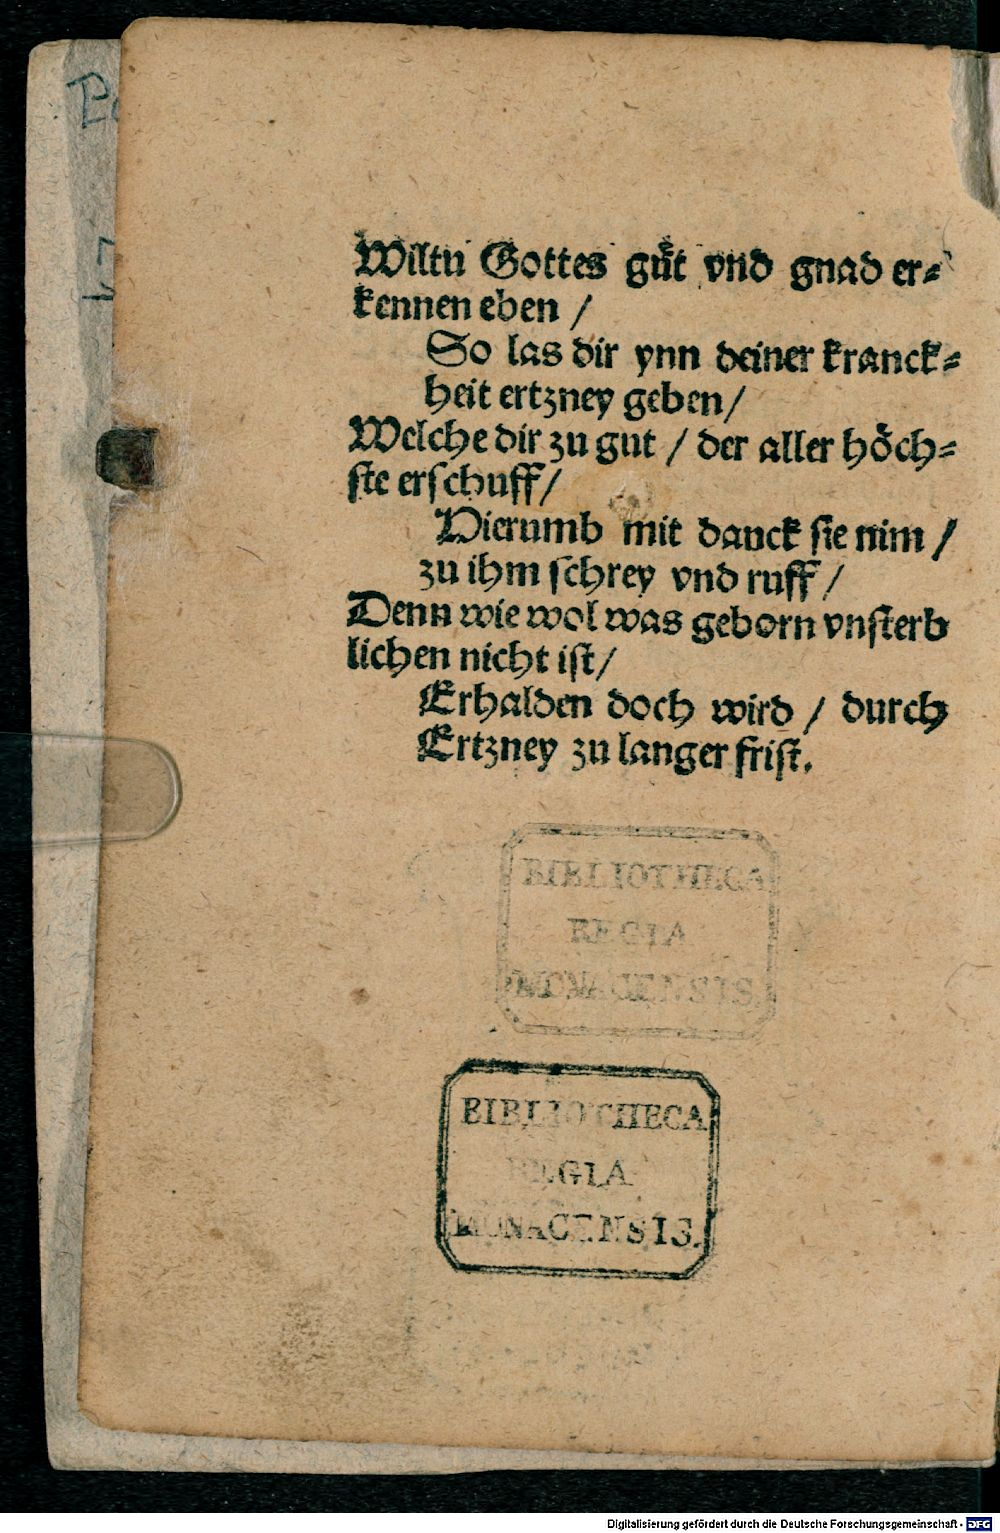 Wiltu Gottes gůt vnd gnad er⸗
kennen eben /
So las dir ynn deiner kranck⸗
heit ertzney geben /
Welche dir zu gut / der aller höch⸗
ste erschuff /
Hierumb mit danck sie nim /
zu ihm schrey vnd ruff /
Denn wie wol was geborn vnsterb
lichen nicht ist /
Erhalden doch wird / durch
Ertzney zu langer frist.
BIBLIOTHECA
REGIA
MONACENSIS
BIBLIOTHECA
REGIA
MONACENSIS.
Digitalisierung gefördert durch die Deutsche Forschungsgemeinschaft - DFG